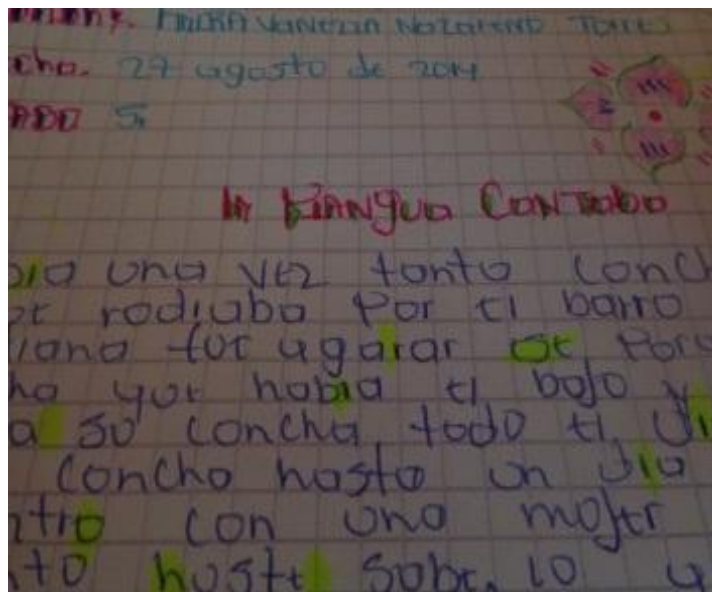 Vanezza Nazareno Torres
cha. 27 agosto de 2014
ADO 5
la Riangua Contabo
bia una vez tanta conch
rodiaba por el barro
iana fue agarar se Porq
ha que habia el bajo y
a su concha todo el di
concha hasta un dia
ntro con una mojer
nto haste sabe. lo q